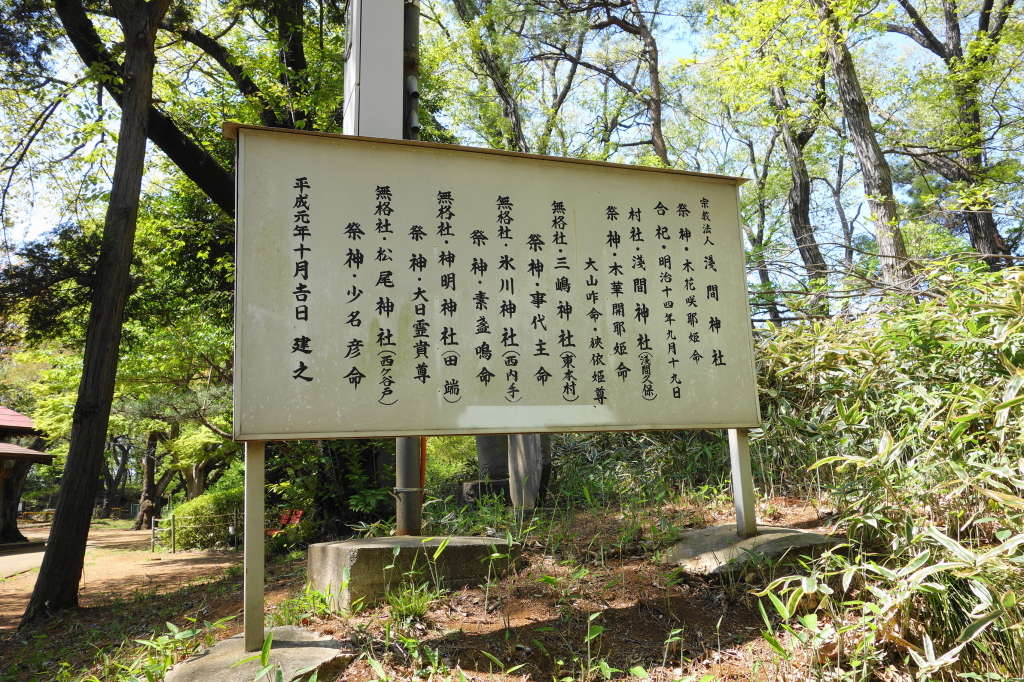 宗教法人 浅間神社
祭神・木花咲耶姫命
合祀・明治十四年九月十九日
村社・浅間神社(浅間久保)
祭神・木葉開耶姫命
大山咋命・挾依姫尊
無格社・三嶋神社(東本村)
祭神・事代主命
無格社・氷川神社(西内手)
祭神・素盞鳴命
無格社・神明神社(田端)
祭神・大日霊貴尊
無格社・松尾神社(西ケ谷戸)
祭神・少名彦命
平成元年十月吉日 建之